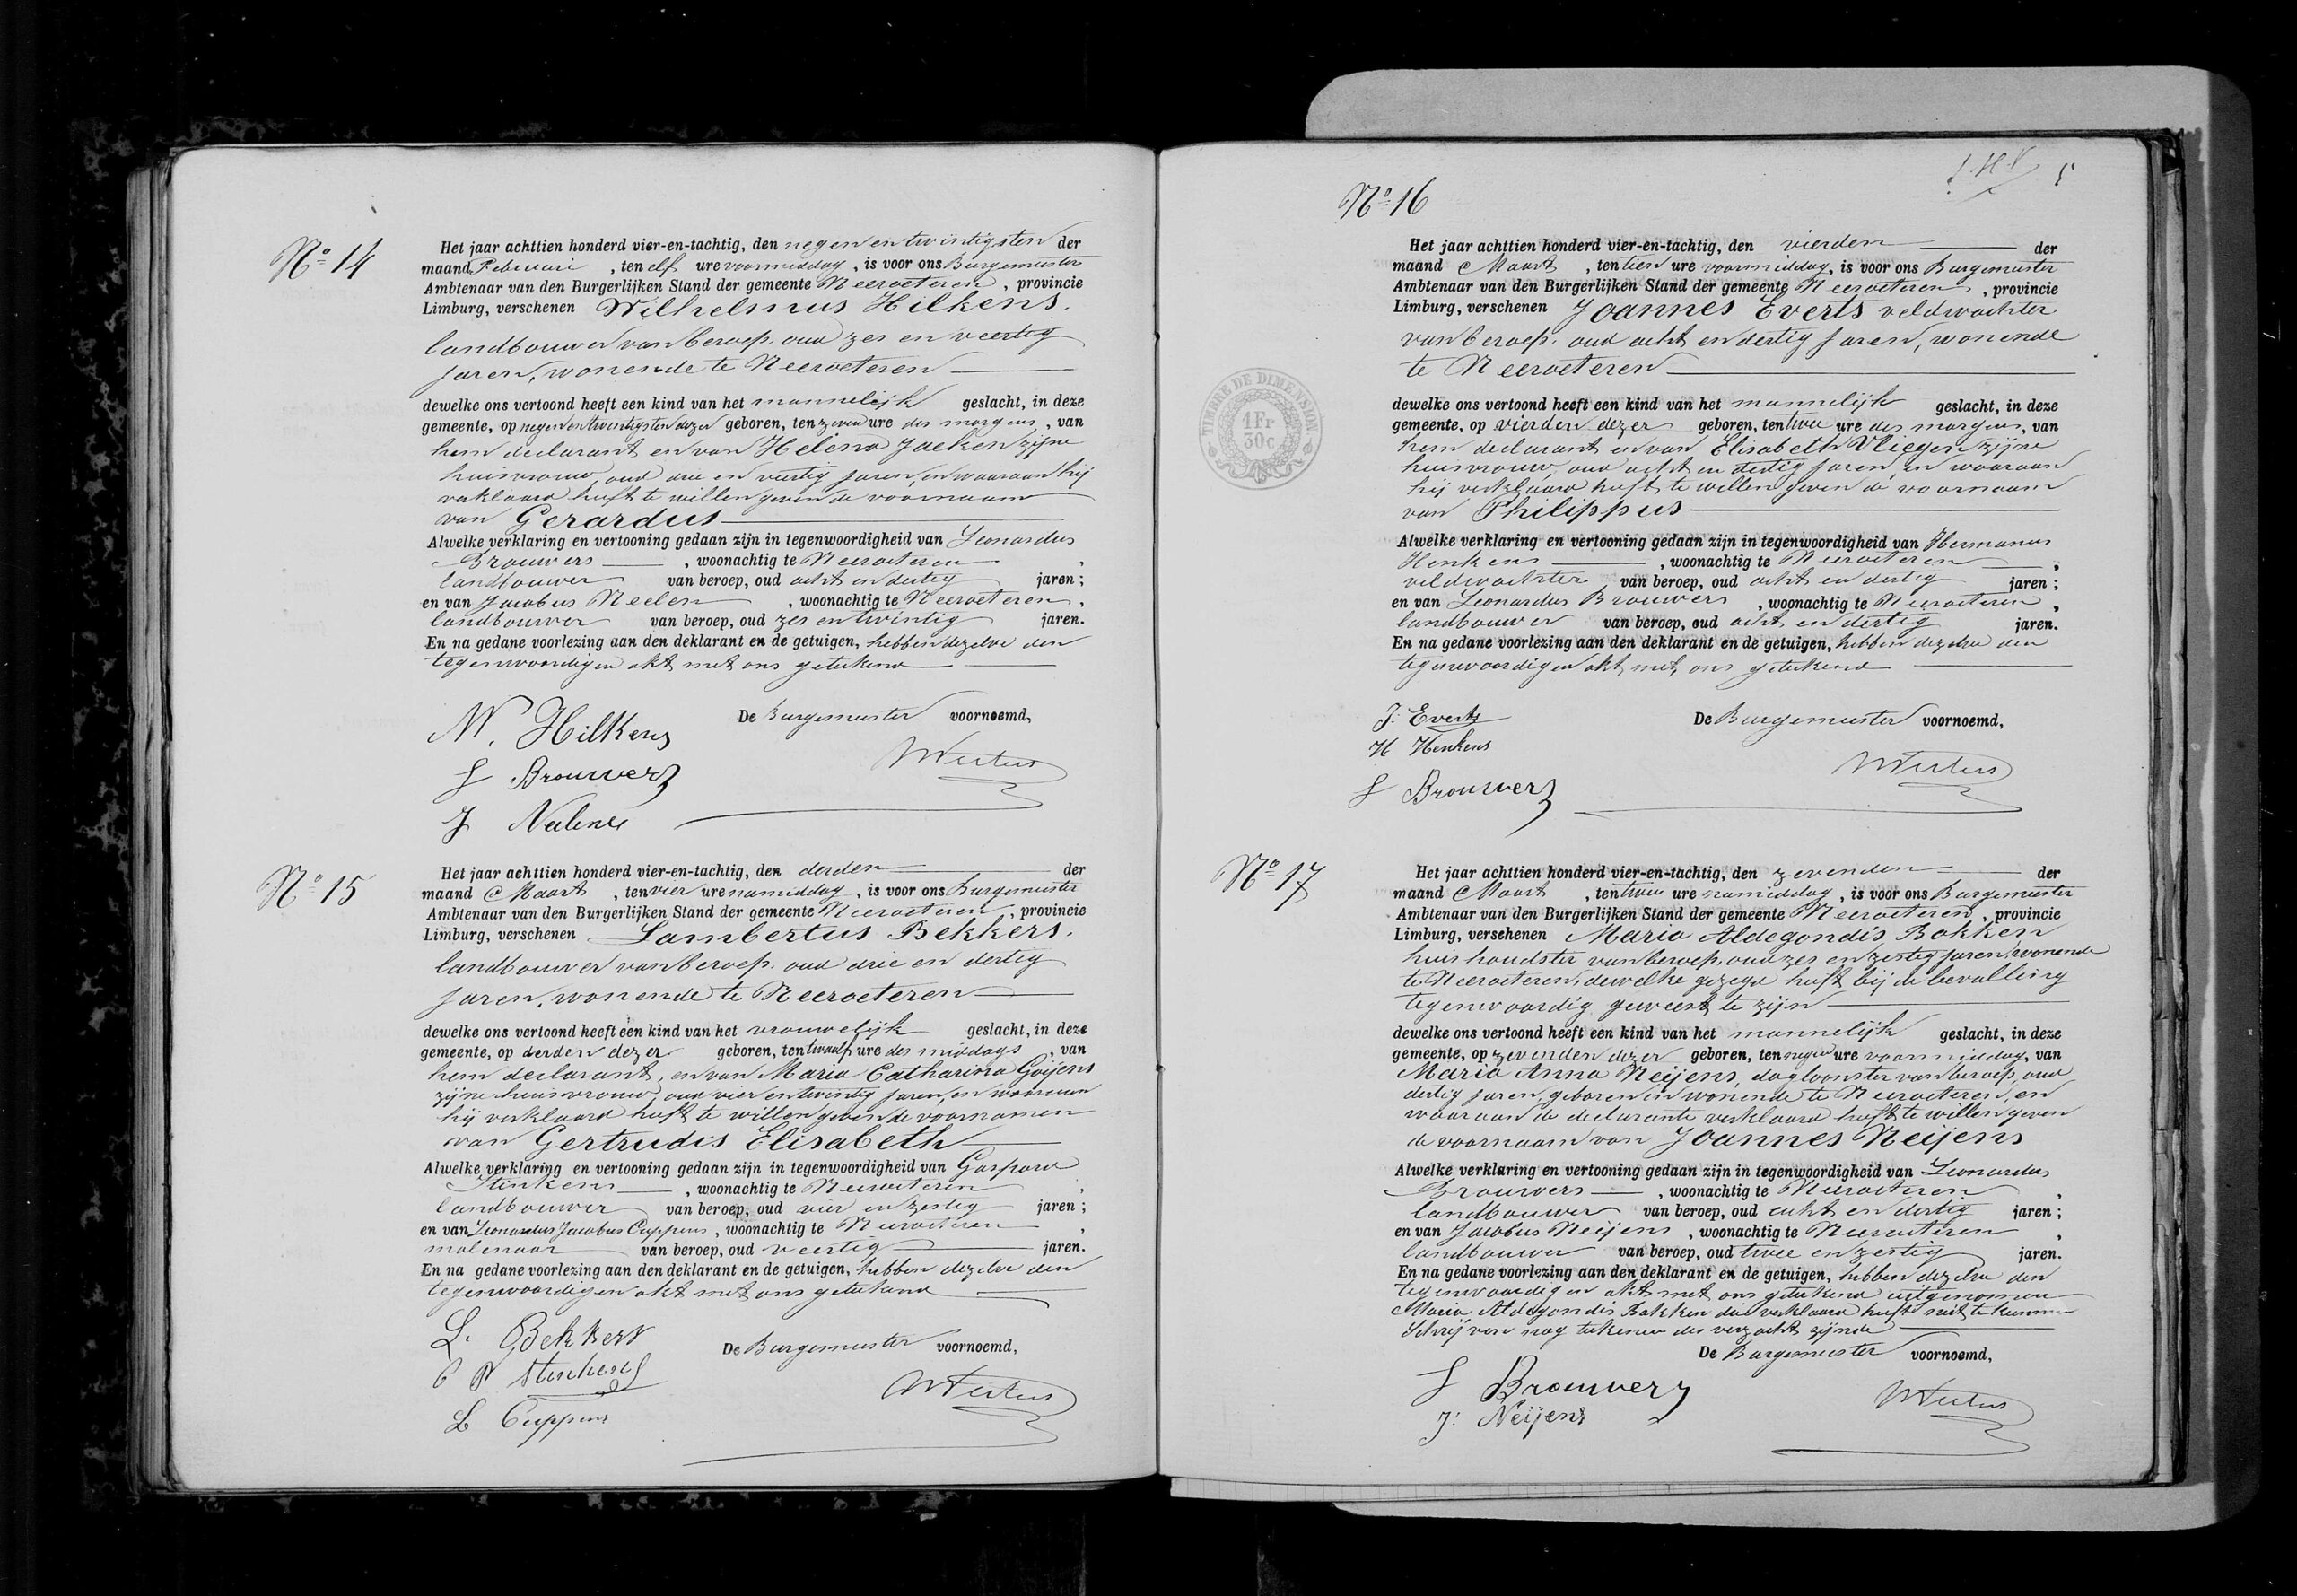 Nº 14
Het jaar achttien honderd vier-en-tachtig, den negen en twintigsten der
maand Februari , ten elf ure voormiddag , is voor ons Burgemeester
Ambtenaar van den Burgerlijken Stand der gemeente Neeroeteren , provincie
Limburg, verschenen Wilhelmus Hilkens,
landbouwer van beroep, oud zes en veertig
jaren, wonende te Neeroeteren
dewelke ons vertoond heeft een kind van het mannelijk geslacht, in deze
gemeente, op negen en twintigsten dezer geboren, ten zeven ure des morgens , van
hem declarant en van Helena Jacken zijne
huisvrouw, oud drie en veertig jaren, en waaraan hij
verklaard heeft te willen geven de voornaam
van Gerardus
Alwelke verklaring en vertooning gedaan zijn in tegenwoordigheid van Leonardus
Brouwers , woonachtig te Neeroeteren ,
landbouwer van beroep, oud acht en dertig jaren ;
en van Jacobus Neelen , woonachtig te Neeroeteren ,
landbouwer van beroep, oud zes en twintig jaren.
En na gedane voorlezing aan den deklarant en de getuigen, hebben dezelve den
tegenwoordigen akt met ons geteekend
De Burgemeester voornoemd,
W. Hilkens
L Brouwers
J
Nº 15
Het jaar achttien honderd vier-en-tachtig, den derden der
maand Maart , ten vier ure namiddag , is voor ons Burgemeester
Ambtenaar van den Burgerlijken Stand der gemeente Neeroeteren , provincie
Limburg, verschenen Lambertus Bekkers,
landbouwer van beroep, oud drie en dertig
jaren, wonende te Neeroeteren
dewelke ons vertoond heeft een kind van het vrouwelijk geslacht, in deze
gemeente, op derden dezer geboren, ten twaalf ure des middags , van
hem declarant, en van Maria Catharina Goijens
zijne huisvrouw, oud vier en twintig jaren, en waaraan
hij verklaard heeft te willen geven de voornamen
van Gertrudis Elisabeth
Alwelke verklaring en vertooning gedaan zijn in tegenwoordigheid van Gaspard
Stinkens , woonachtig te Neeroeteren ,
landbouwer van beroep, oud vier en zestig jaren ;
en van Leonardus Jacobus Cuppens , woonachtig te Neeroeteren ,
molenaar van beroep, oud veertig jaren.
En na gedane voorlezing aan den deklarant en de getuigen, hebben dezelve den
tegenwoordigen akt met ons geteekend
L. Bekkers
De Burgemeester voornoemd,
L Cuppens
5
Nº 16
Het jaar achttien honderd vier-en-tachtig, den vierden der
maand Maart , ten tien ure voormiddag, is voor ons Burgemeester
Ambtenaar van den Burgerlijken Stand der gemeente Neeroeteren , provincie
Limburg, verschenen Joannes Everts veldwachter
van beroep, oud acht en dertig jaren, wonende
te Neeroeteren
TIMBRE DE DIMENSION
1 Fr
30 C
dewelke ons vertoond heeft een kind van het mannelijk geslacht, in deze
gemeente, op vierden dezer geboren, ten twee ure des morgens, van
hem declarant en van Elisabeth Vliegen zijne
huisvrouw, oud acht en dertig jaren, en waaraan
hij verklaard heeft te willen geven de voornaam
van Philippus
Alwelke verklaring en vertooning gedaan zijn in tegenwoordigheid van Hermanus
Henkens , woonachtig te Neeroeteren ,
veldwachter van beroep, oud acht en dertig jaren ;
en van Leonardus Brouwers , woonachtig te Neeroeteren ,
landbouwer van beroep, oud acht en dertig jaren.
En na gedane voorlezing aan den deklarant en de getuigen, hebben dezelve den
tegenwoordigen akt met ons geteekend
J. Everts
De Burgemeester voornoemd,
H Henkens
L Brouwers
Nº 17
Het jaar achttien honderd vier-en-tachtig, den zevenden der
maand Maart , ten twee ure namiddag , is voor ons Burgemeester
Ambtenaar van den Burgerlijken Stand der gemeente Neeroeteren , provincie
Limburg, verschenen Maria Aldegondis Bakken
huishoudster van beroep, oud zes en zestig jaren, wonende
te Neeroeteren, dewelke gezegd heeft bij de bevalling
tegenwoordig geweest te zijn
dewelke ons vertoond heeft een kind van het mannelijk geslacht, in deze
gemeente, op zevenden dezer geboren, ten negen ure voormiddag, van
Maria Anna Neijens, dagloonster van beroep, oud
dertig jaren, geboren en wonende te Neeroeteren, en
waaraan de declarante verklaard heeft te willen geven
de voornaam van Joannes Neijens
Alwelke verklaring en vertooning gedaan zijn in tegenwoordigheid van Leonardus
Brouwers , woonachtig te Neeroeteren ,
landbouwer van beroep, oud acht en dertig jaren ;
en van Jacobus Neijens , woonachtig te Neeroeteren ,
landbouwer van beroep, oud twee en zestig jaren.
En na gedane voorlezing aan den deklarant en de getuigen, hebben dezelve den
tegenwoordigen akt met ons geteekend uitgenomen
Maria Aldegondis Bakken die verklaard heeft niet te kunnen
schrijven nog teekenen des verzocht zijnde
De Burgemeester voornoemd,
L Brouwers
J. Neijens